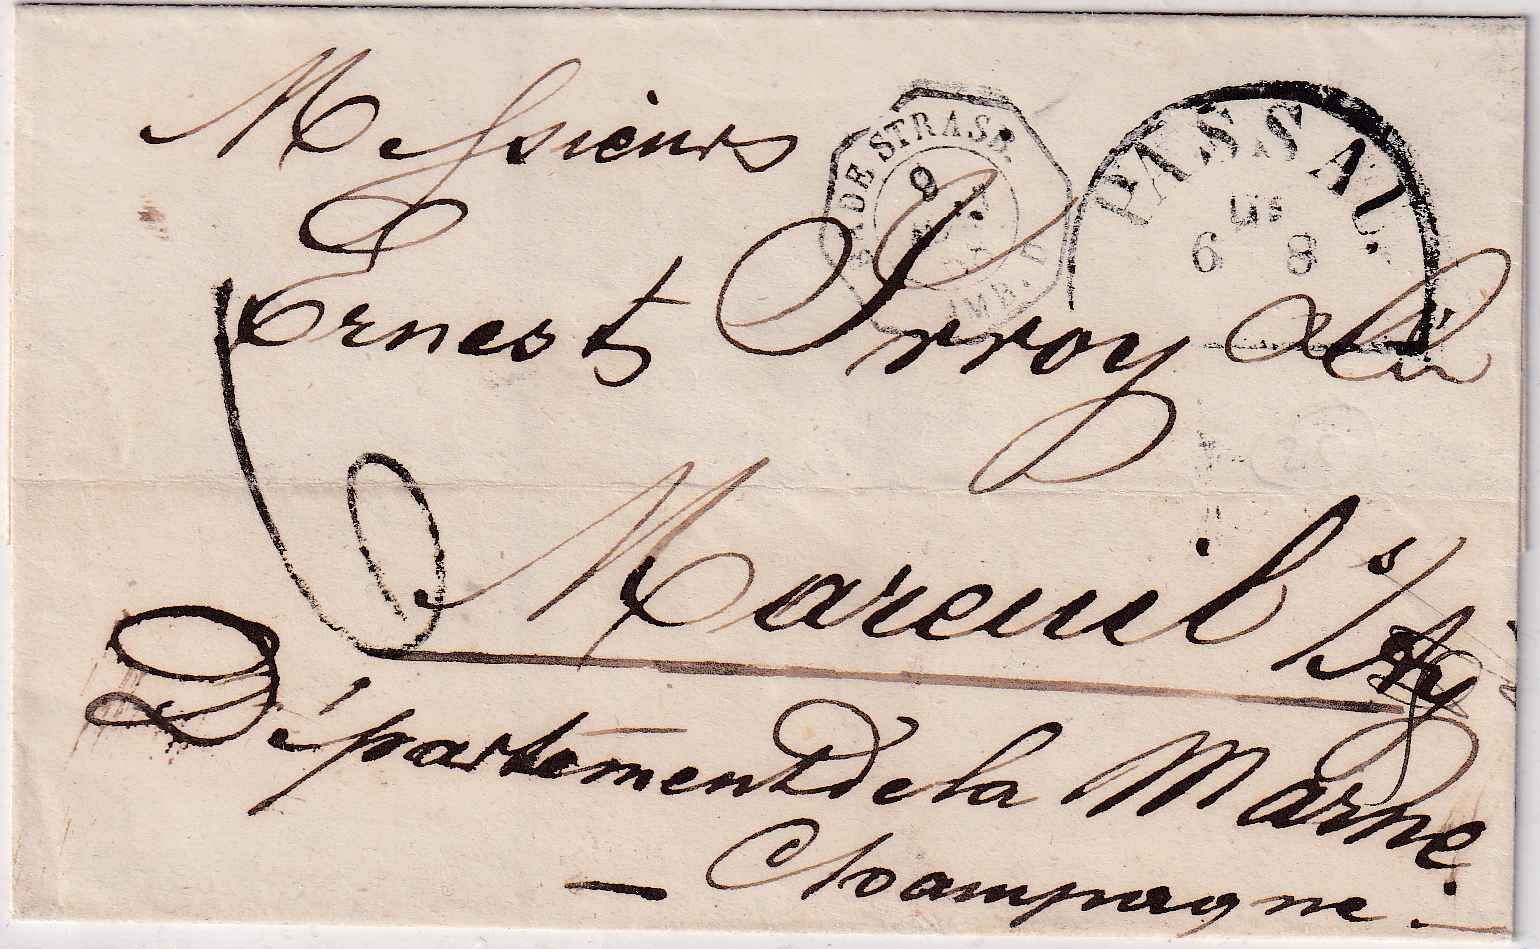 Messieurs
B. A DE STRASB.
9
AMB. D
PASSAU.
6 8
Ernest Irroy & Cie
6
Mareuil s/Ay
Département de la Marne
— Champagne.